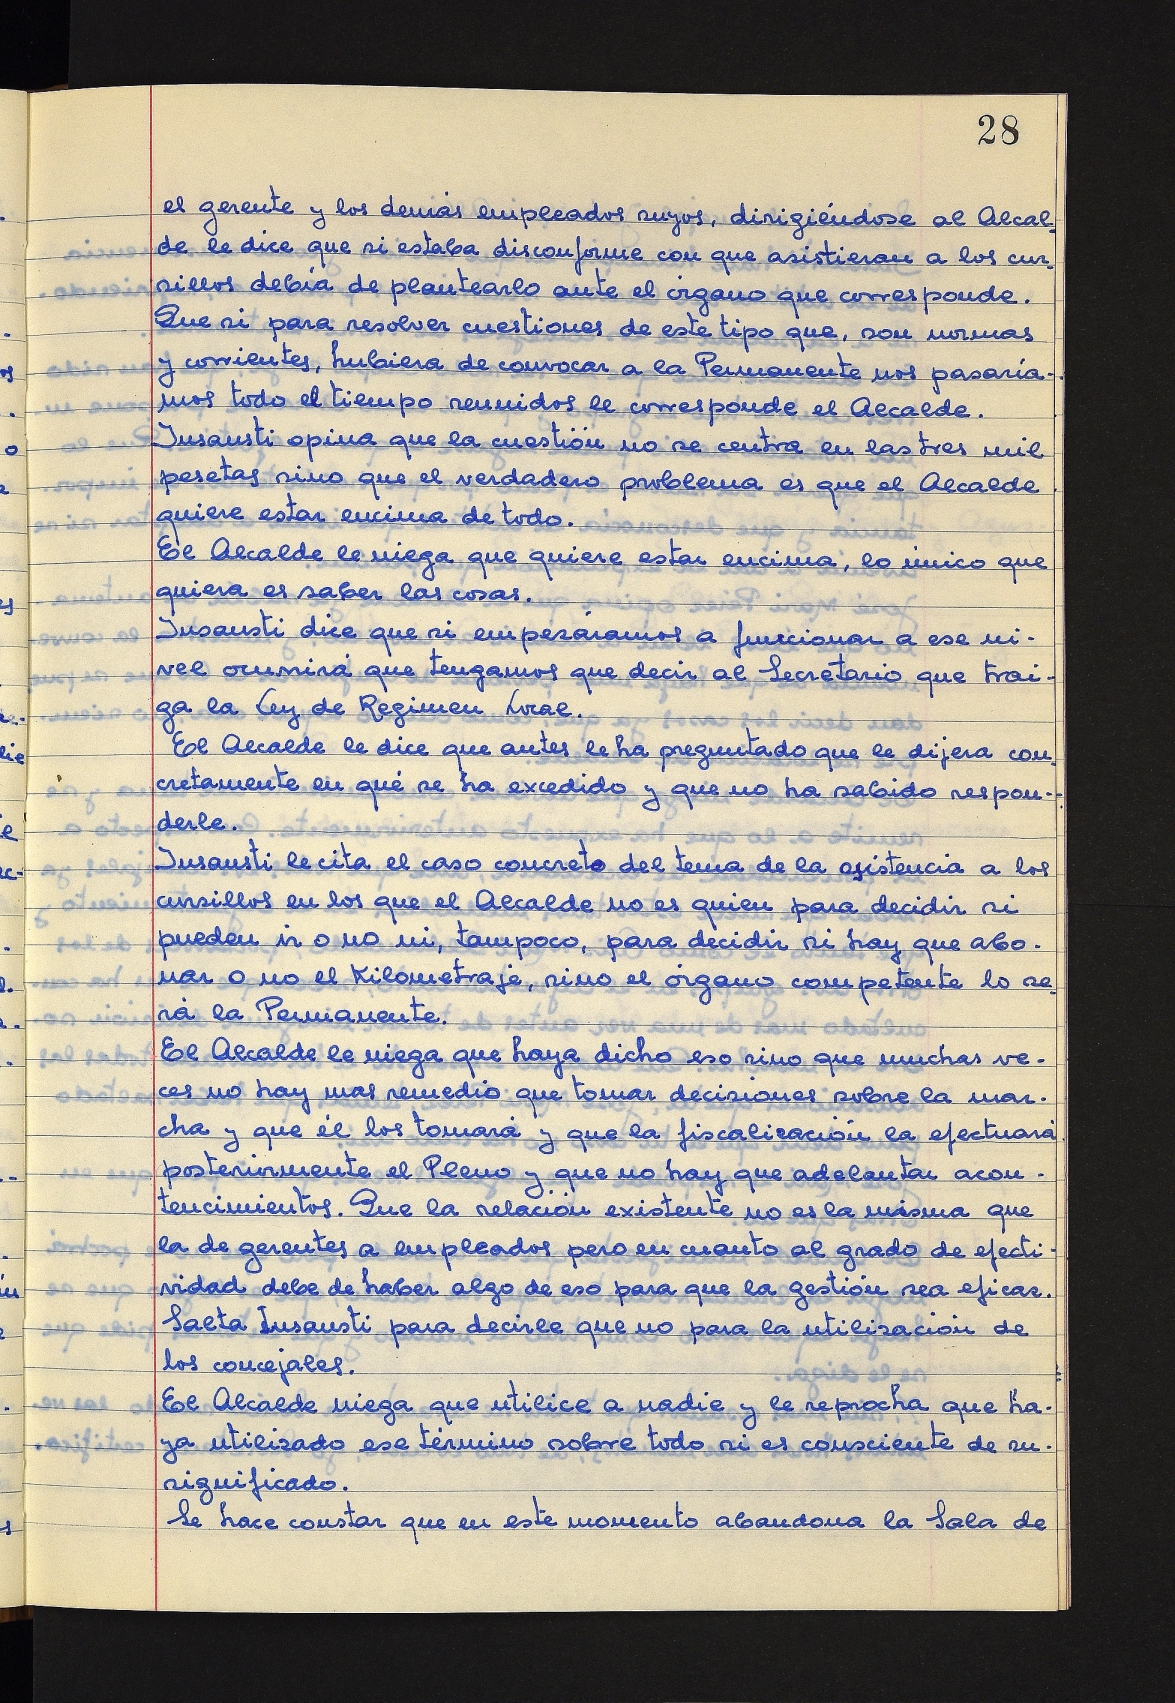 28
el gerente y los demás empleados suyos, dirigiéndose al Alcal-
de le dice que si estaba disconforme con que asistieran a los cur-
sillos debía de plantearlo ante el órgano que corresponde.
Que si para resolver cuestiones de este tipo que, son normas
y corrientes, hubiera de convocar a la Permanente nos pasaría-
mos todo el tiempo reunidos le corresponde el Alcalde.
Insausti opina que la cuestión no se centra en las tres mil
pesetas sino que el verdadero problema es que el Alcalde
quiere estar encima de todo.
El Alcalde le niega que quiere estar encima, lo único que
quiera es saber las cosas.
Insausti dice que si empezáramos a funcionar a ese ni-
vel ocurrirá que tengamos que decir al Secretario que trai-
ga la Ley de Regimen Local.
El Alcalde le dice que antes le ha preguntado que le dijera con-
cretamente en qué se ha excedido y que no ha sabido respon-
derle.
Insausti le cita el caso concreto del tema de la asistencia a los
cursillos en los que el Alcalde no es quien para decidir si
pueden ir o no ni, tampoco, para decidir si hay que abo-
nar o no el Kilometraje, sino el órgano competente lo se-
rá la Permanente.
El Alcalde le niega que haya dicho eso sino que muchas ve-
ces no hay mas remedio que tomar decisiones sobre la mar-
cha y que él los tomará y que la fiscalización la efectuará
posteriormente el Pleno y que no hay que adelantar acon-
tencimientos. Que la relación existente no es la misma que
la de gerentes a empleados pero en cuanto al grado de efecti-
vidad debe de haber algo de eso para que la gestión sea eficaz.
Salta Insausti para decirle que no para la utilización de
los concejales.
El Alcalde niega que utilice a nadie y le reprocha que ha-
ya utilizado ese término sobre todo si es consciente de su
significado.
Se hace constar que en este momento abandona la Sala de